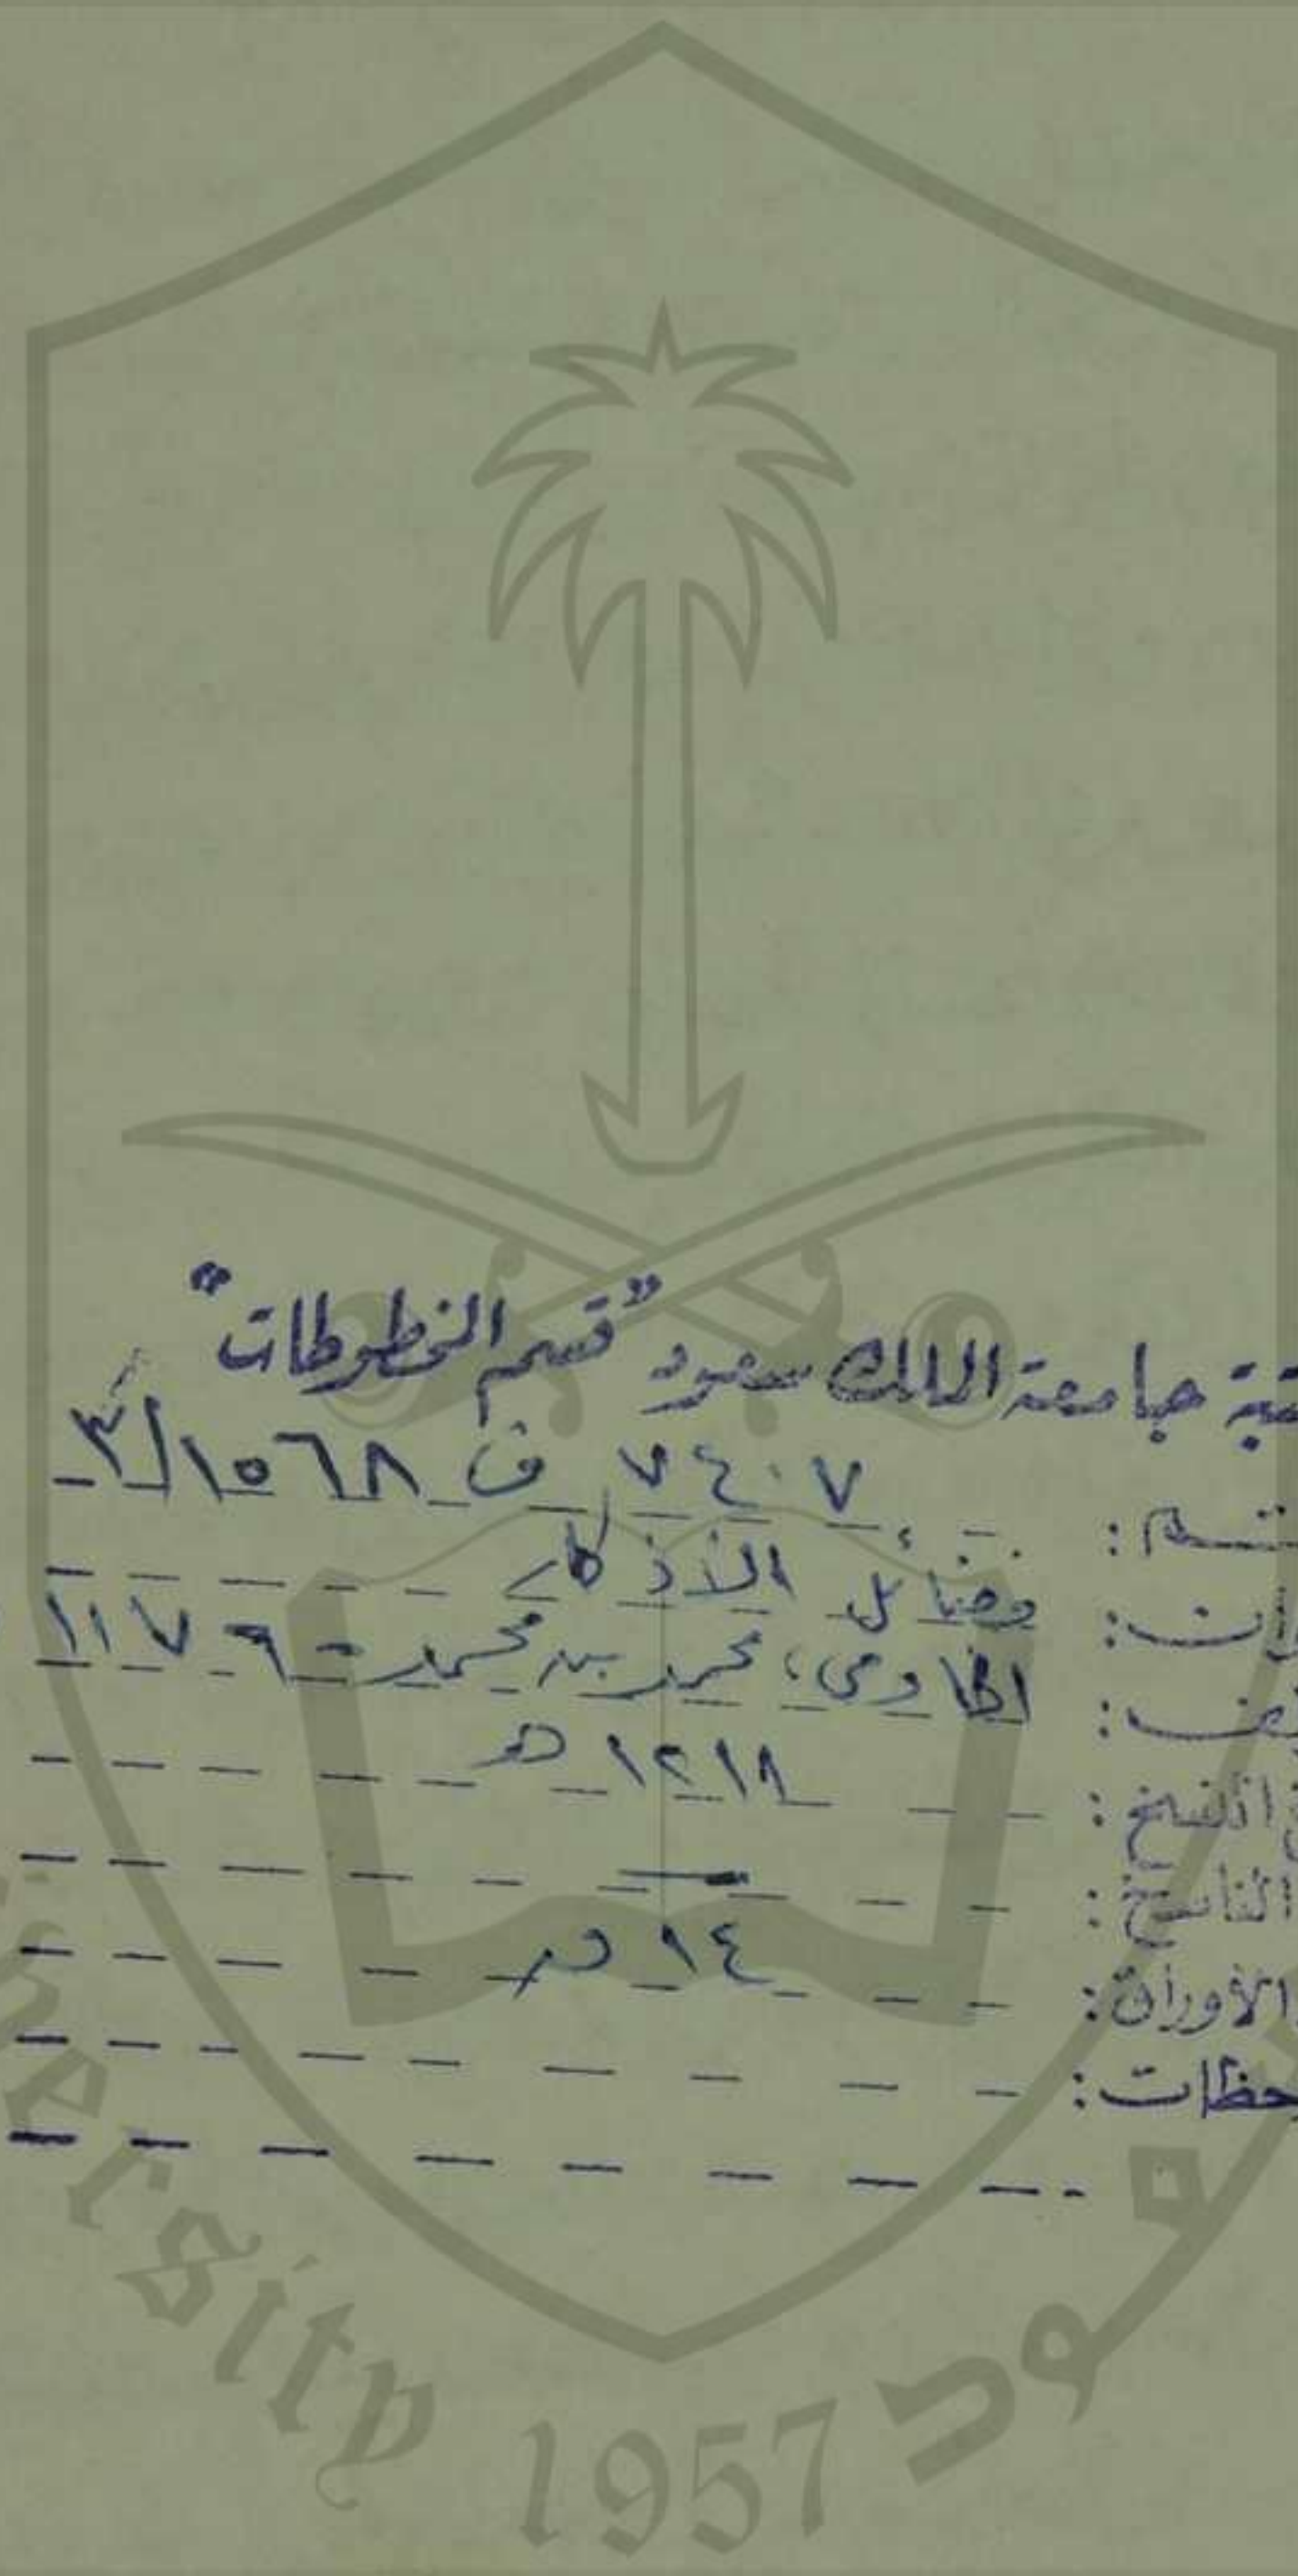 جامعة الملك سعود "قسم المخطوطات"
٧٤٠٧ ف ١٥٦٨/٣
فضائل الأذكار
محمد بن محمد - ١١٧٦
النسخ: ١٢١٨ هـ
الناسخ: —
الأوراق: ١٤ ور
حظات:
ersity 1957